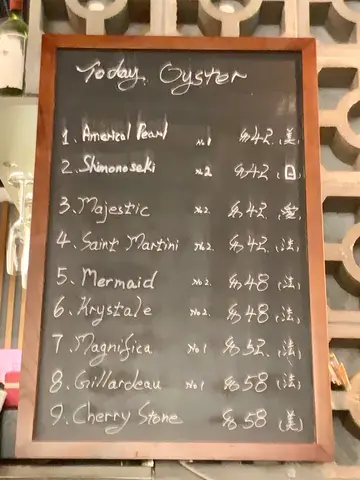 Today Oyster
1. Americal Pearl No1 $42 (美)
2. Shimonoseki No2 $42 (日)
3. Majestic No2 $42
4. Saint Martini No2 $42 (法)
5. Mermaid No2 $48 (法)
6. Krystale No2 $48 (法)
7. Magnifica No1 $52 (法)
8. Gillardeau No1 $58 (法)
9. Cherry Stone $58 (美)